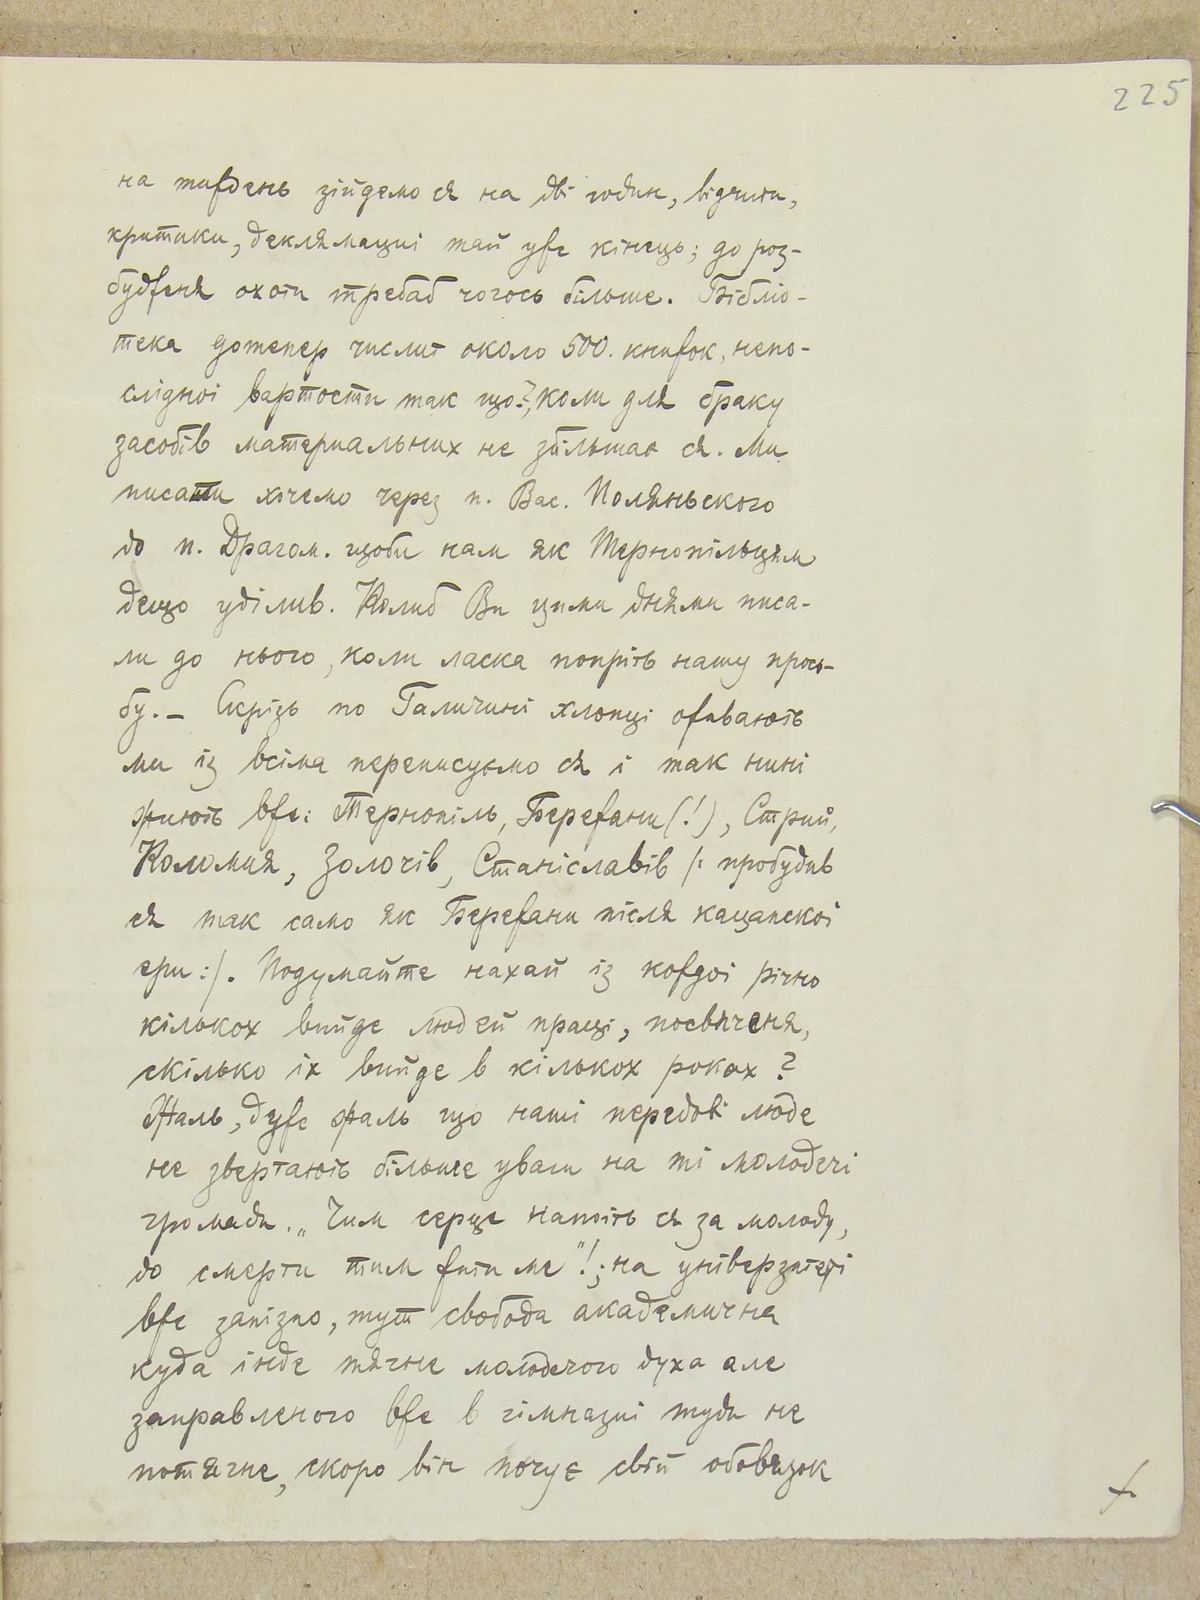 225
на тиждень зійдемо ся на дві годин, відчити,
критики, деклямациі тай уже кінець; до роз-
будженя охоти требаб чогось більше. Бібліо-
тека дотепер числит около 500. книжок, непо-
слідноі вартости так що?, коли для браку
засобів материальних не збільшає ся. Ми
писати хочемо через п. Вас. Поляньского
до п. Драгом. щоби нам як Тернопільцям
дещо уділив. Колиб Ви цими днями писа-
ли до нього, коли ласка попріть нашу прось-
бу. – Скрізь по Галичині хлопці оживають
ми із всіма переписуємо ся і так нині
жиють вже: Тернопіль, Бережани (!), Стрий,
Коломия, Золочів, Станіславів /: пробудив
ся так само як Бережани після кацапскоі
ери :/. Подумайте нехай із кождоі річно
кількох вийде людей праці, посвяченя,
скілько іх вийде в кількох роках?
Жаль, дуже жаль що наші передові люде
не звертають більше уваги на ті молодечі
громади. „Чим серце напоїть ся за молоду,
до смерти тим жити ме"!; на унїверзитеті
вже запізно, тут свобода академична
куда інде тягне молодечого духа але
заправленого вже в гімназиі туди не
потягне, скоро він почує свій обовязок